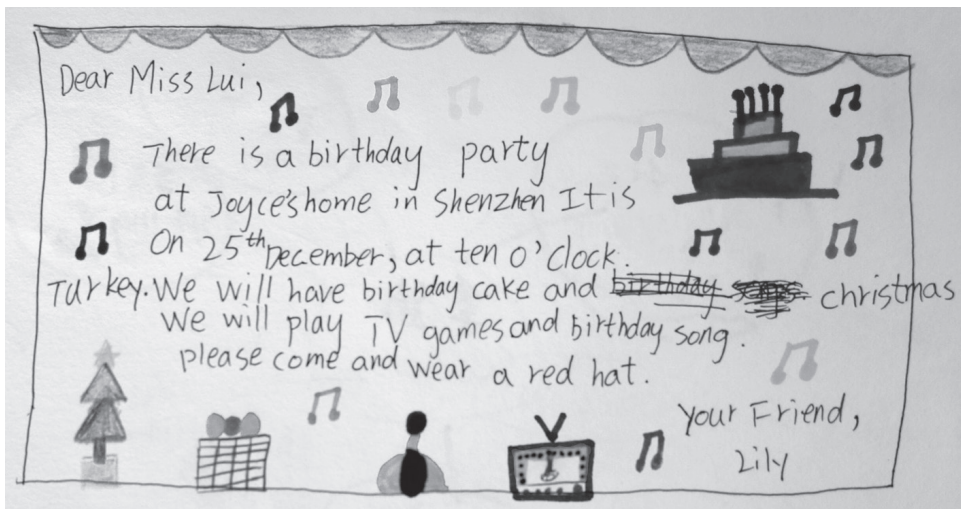 Dear Miss Lui,
There is a birthday party
at Joyce's home in Shenzhen It is
On 25th December, at ten o'clock.
Turkey. We will have birthday cake and birthday songs christmas
We will play TV games and birthday song.
please come and wear a red hat.
Your Friend,
Lily